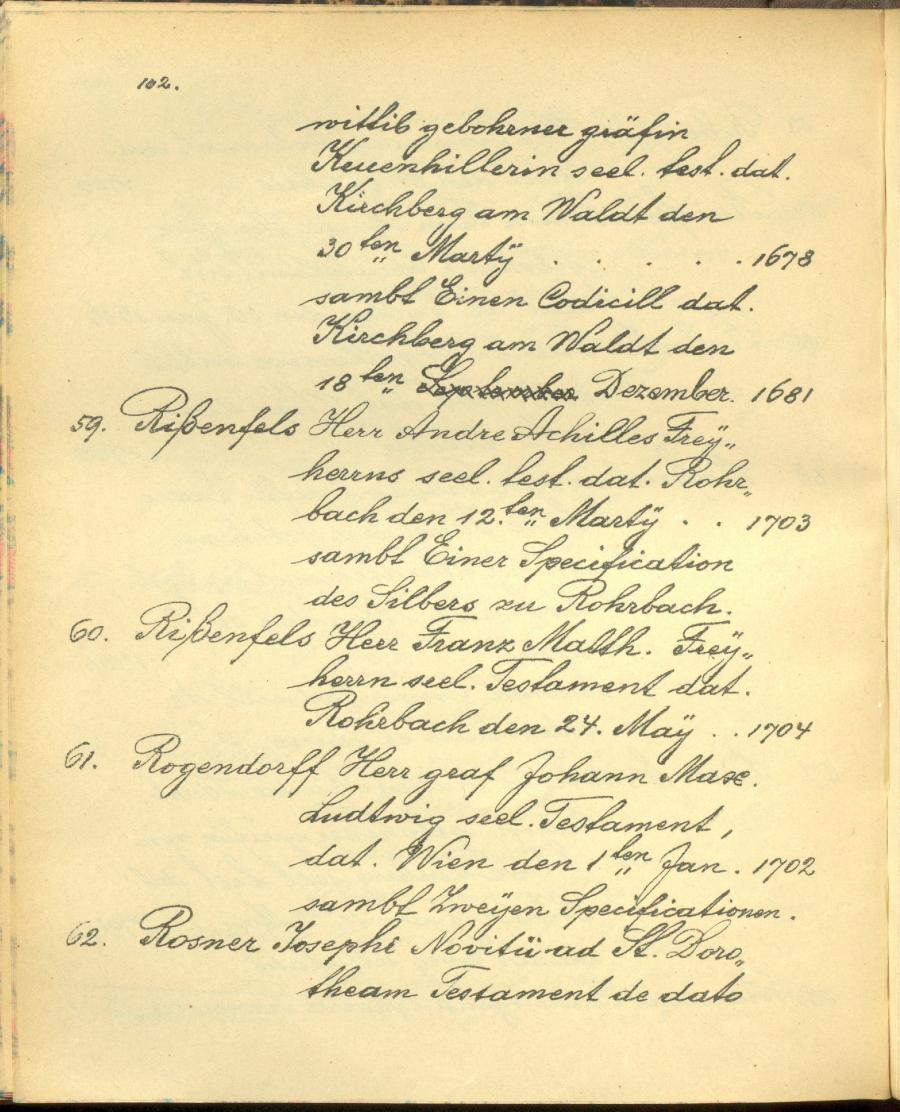 102.
wittib gebohrner gräfin
Keuenhillerin seel. test. dat.
Kirchberg am Waldt den
30ten Martÿ . . . . . 1678
sambt Einen Codicill dat.
Kirchberg am Waldt den
18ten September Dezember. 1681
59. Rißenfels Herr Andre Achilles Freÿ„
herrns seel. test. dat. Rohr„
bach den 12.ten Martÿ . . 1703
sambt Einer Specification
des Silbers zu Rohrbach.
60. Rißenfels Herr Franz Matth. Freÿ„
herrn seel. Testament dat.
Rohrbach den 24. Maÿ . . 1704
61. Rogendorff Herr graf Johann Max.
Ludtwig seel. Testament,
dat. Wien den 1ten Jan. 1702
sambt Zweÿen Specificationen.
62. Rosner Josephi Novitii ad St. Doro„
theam Testament de dato